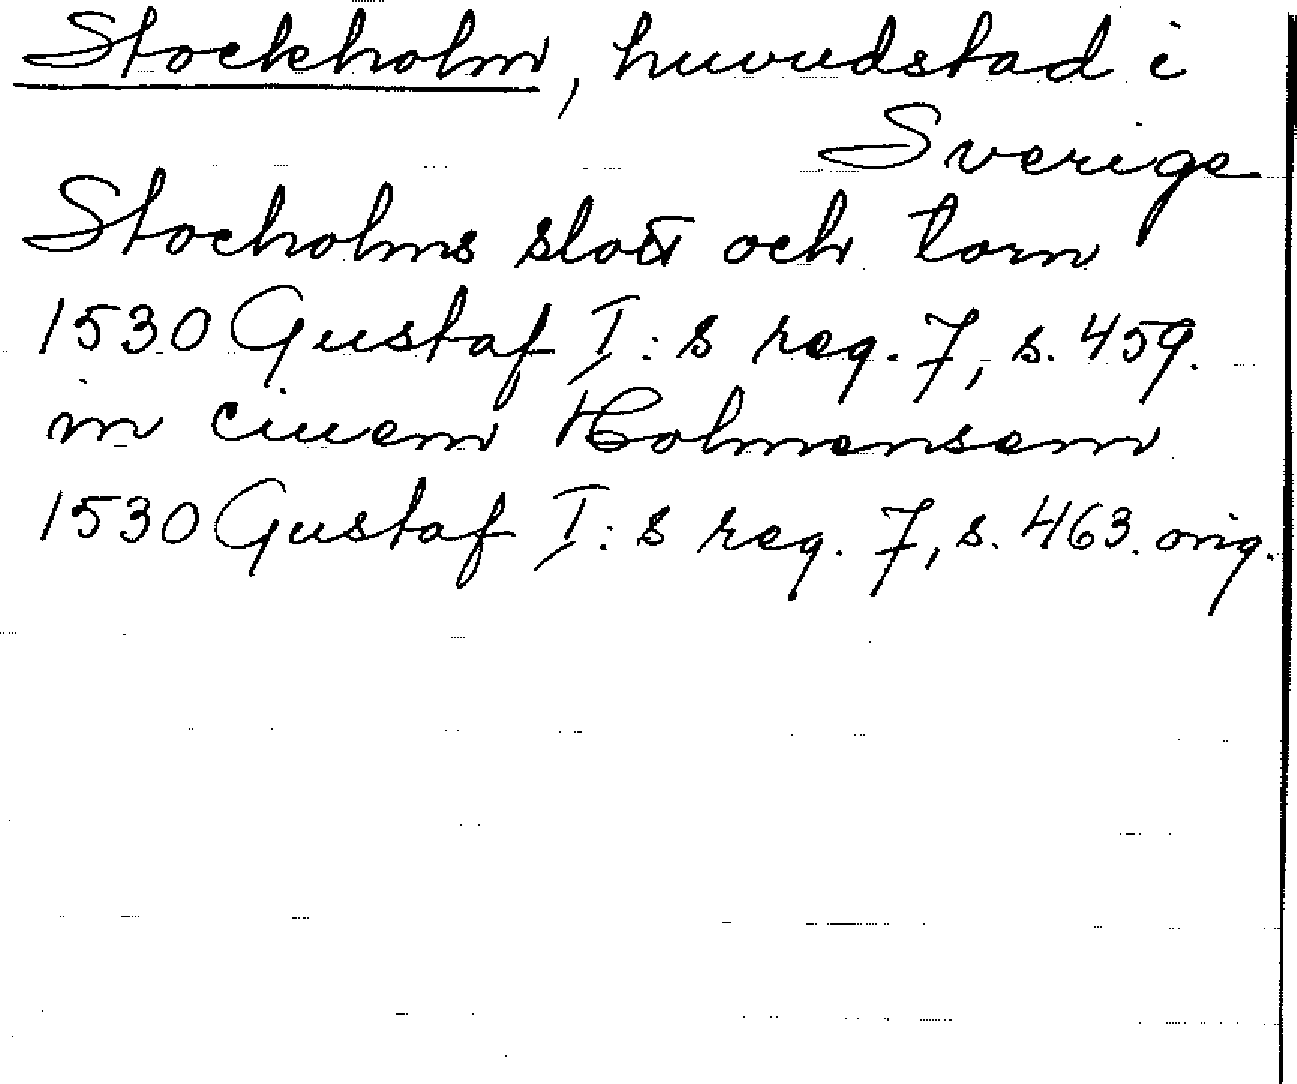 Stockholm, huvudstad i
Sverige
Stocholms slott och torn
1530 Gustaf I:s reg. 7, s. 459.
in civem Holmensem
1530 Gustaf I:s reg. 7, s. 463. orig.